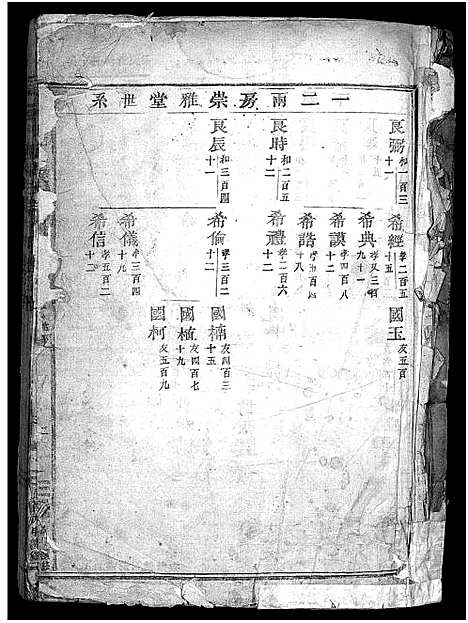 一二兩房崇雅堂世系
良弼 和一百三 十一
希經 孝二百五 十五
國玉 友五百
希典 孝又三百 九十一
希謨 孝四百八 十二
希誥
良時 和二百五 十二
希禮 孝二百六 十二
良辰 和三百四 十一
希倫 孝三百二 十二
國楠 友四百三 十五
國植 友四百七 十九
國柯 友五百九
希儀 孝三百四 十九
希信 孝五百二 十二